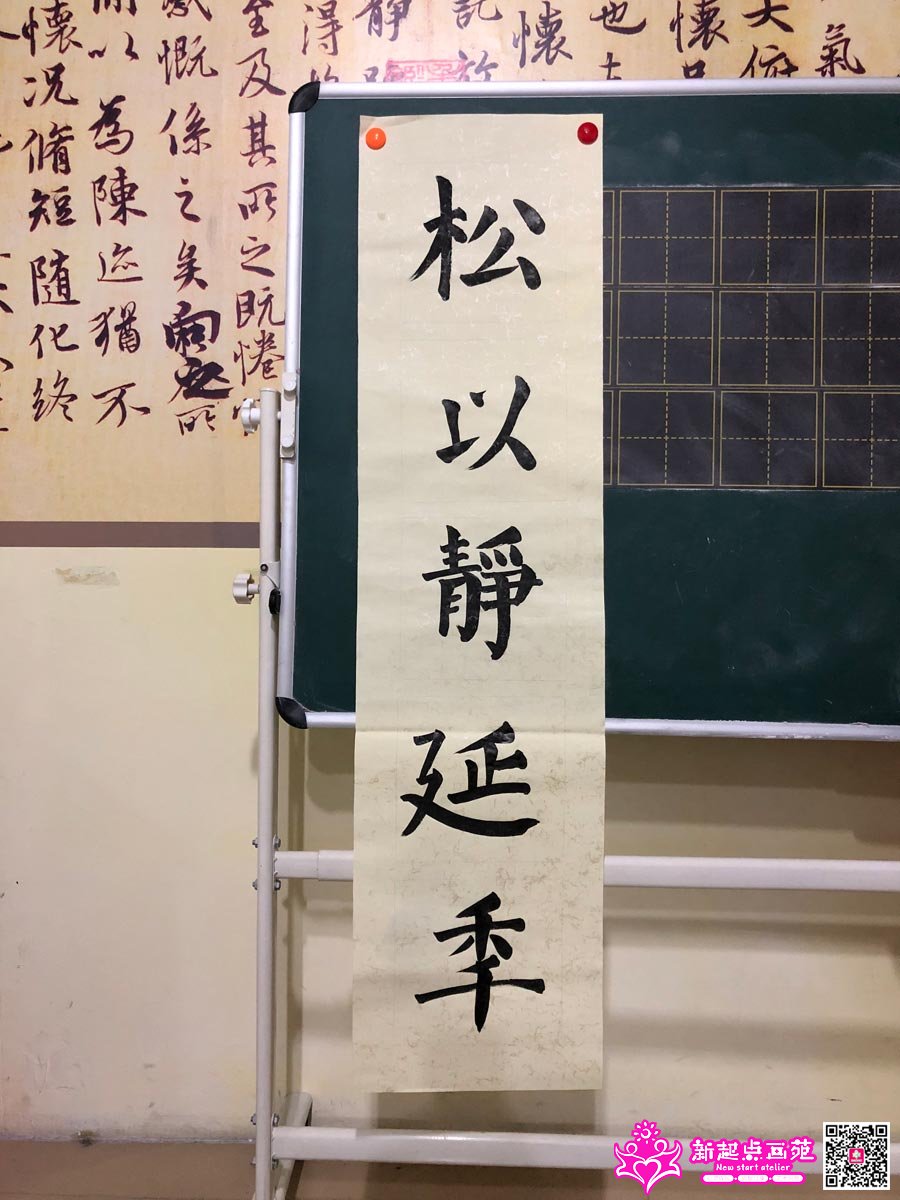 松以靜延年
氣
大俯
懷
也
懷
託於
靜
得
及其所之既惓
感慨係之矣向之所
以為陳迹猶不
懷況脩短隨化終
新起点画苑
New start atelier